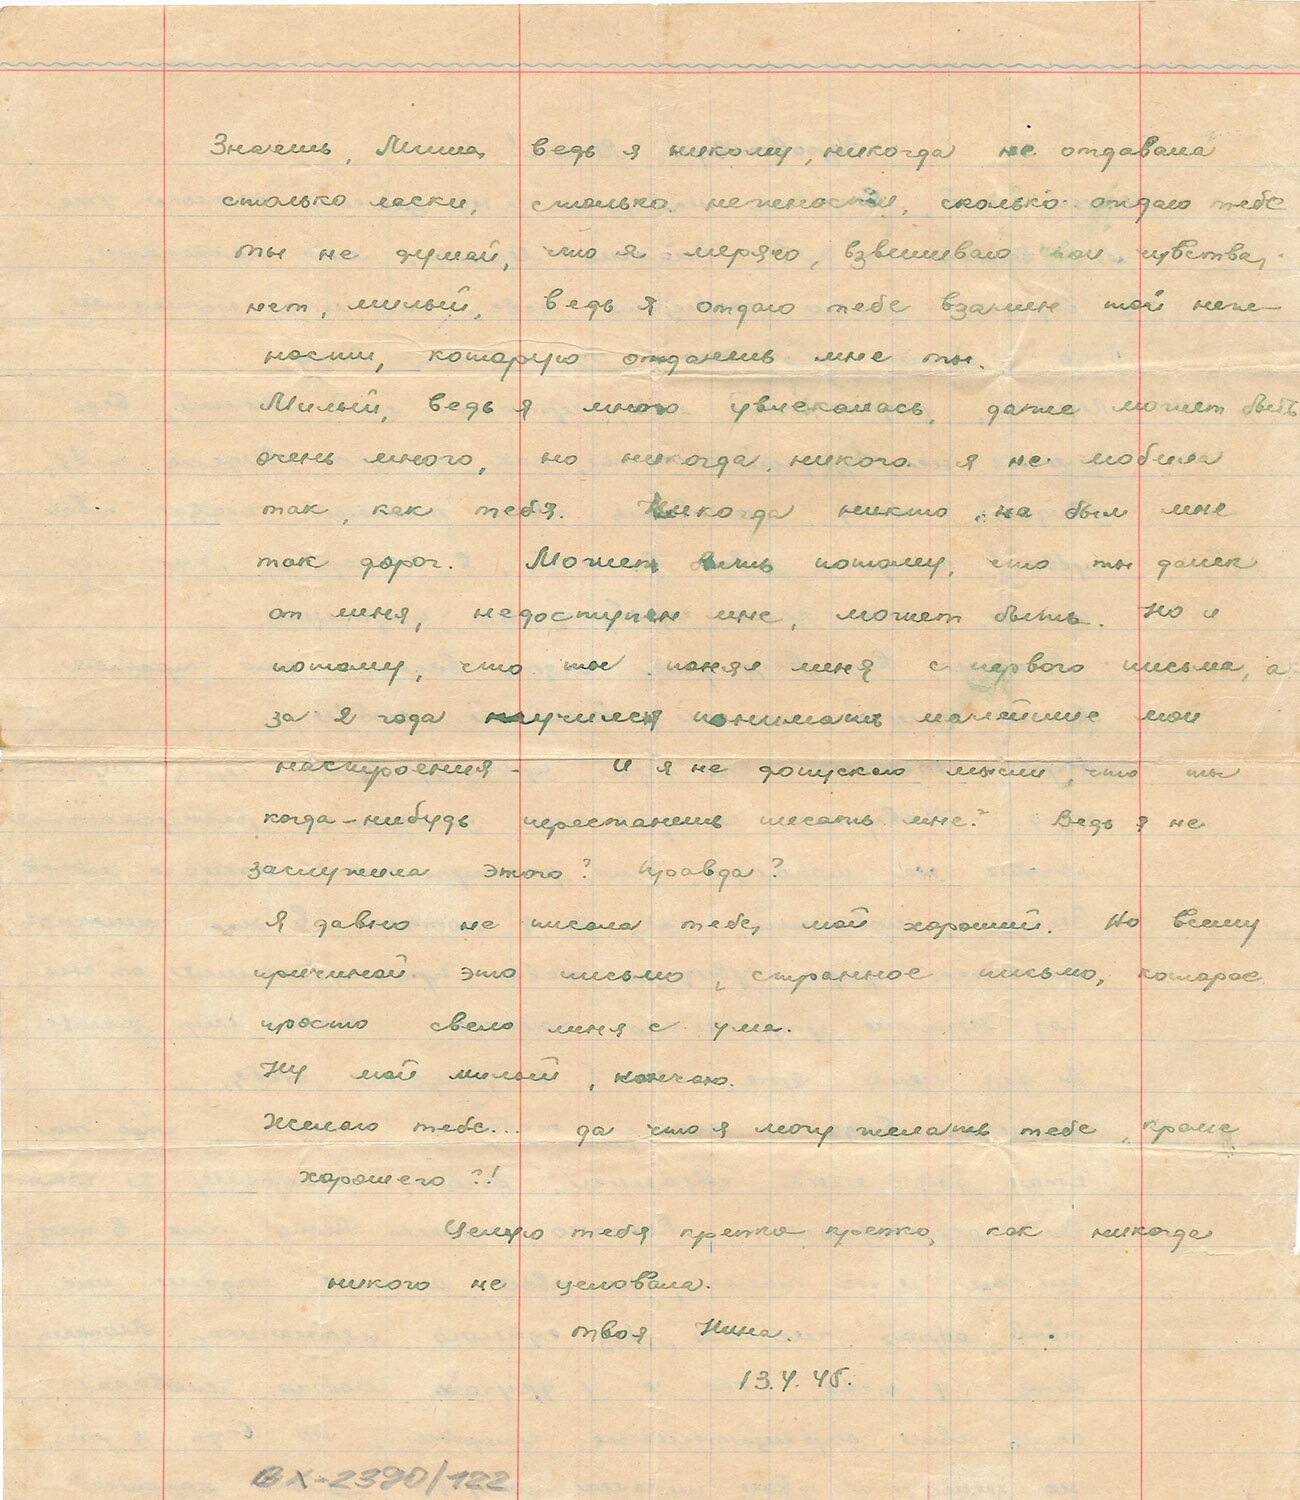 Знаешь, Миша, ведь я никому, никогда не отдавала
столько ласки, столько нежности, сколько отдаю тебе
ты не думай, что я меряю, взвешиваю свои чувства,
нет, милый, ведь я отдаю тебе взамен той неж-
ности, которую отдаешь мне ты.
Милый, ведь я много увлекалась, даже может быть
очень много, но никогда, никого я не любила
так, как тебя. Никогда никто не был мне
так дорог. Может быть потому, что ты далек
от меня, недоступен мне, может быть. Но и
потому, что ты понял меня с первого письма, а
за 2 года научился понимать малейшие мои
настроения. И я не допускаю мысли, что ты
когда-нибудь перестанешь писать мне? Ведь я не
заслужила этого? Правда?
Я давно не писала тебе, мой хороший. Но всему
причиной это письмо, странное письмо, которое
просто свело меня с ума.
Ну мой милый, кончаю.
Желаю тебе... да что я могу желать тебе, кроме
хорошего?!
Целую тебя крепко крепко, как никогда
никого не целовала.
твоя Нина.
13.4.45.
ВХ-2390/122